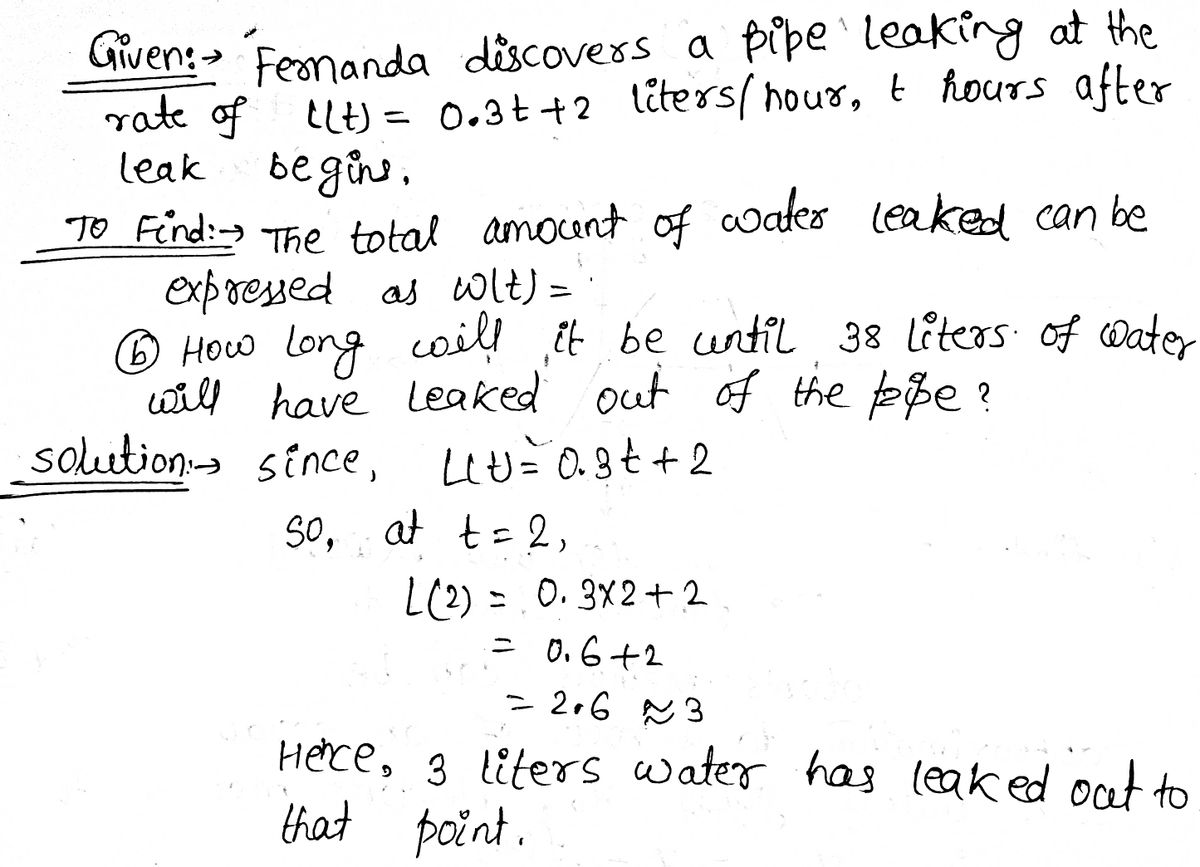 Given:→ Fernanda discovers a pipe leaking at the
rate of L(t) = 0.3t +2 liters/hour, t hours after
leak begins.
To Find:→ The total amount of water leaked can be
expressed as W(t) =
ⓑ How long will it be until 38 liters of water
will have leaked out of the pipe?
Solution:→ since, L(t) = 0.3t + 2
So, at t = 2,
L(2) = 0.3x2 + 2
= 0.6 +2
= 2.6 ≈ 3
Hence, 3 liters water has leaked out to
that point.